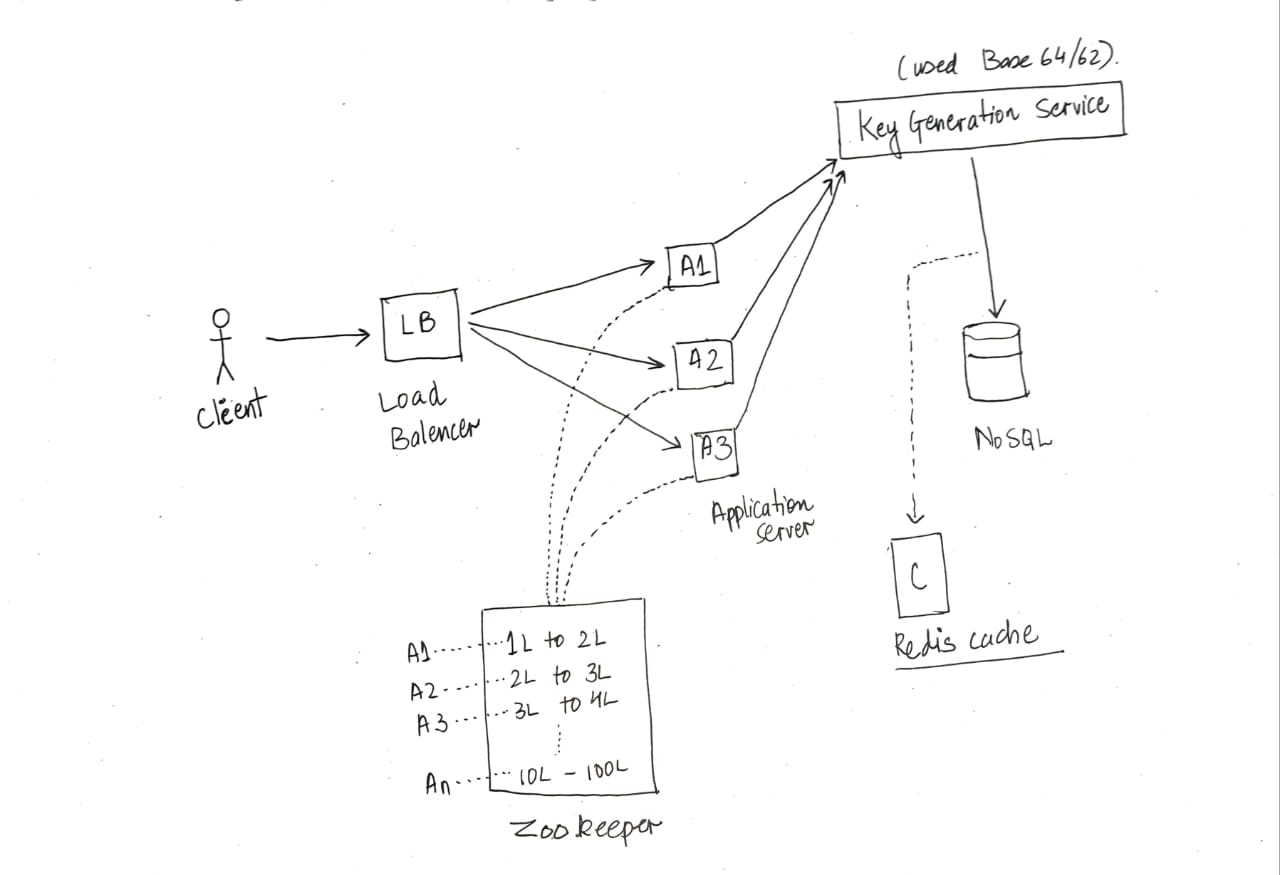 (used Base 64/62).
Key Generation Service
A1
LB
A2
Load
Balencer
Client
A3
NoSQL
Application
server
C
Redis cache
A1 1L to 2L
A2 2L to 3L
A3 3L to 4L
An 10L - 100L
Zookeeper